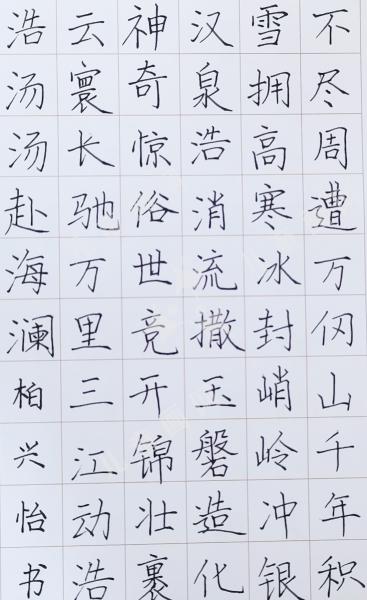 不尽周遭万仞山千年积
雪拥高寒冰封峭岭冲银
汉泉浩消流撒玉磐造化
神奇惊俗世竞开锦壮裹
云寰长驰万里三江动浩
浩汤汤赴海澜柏兴怡书